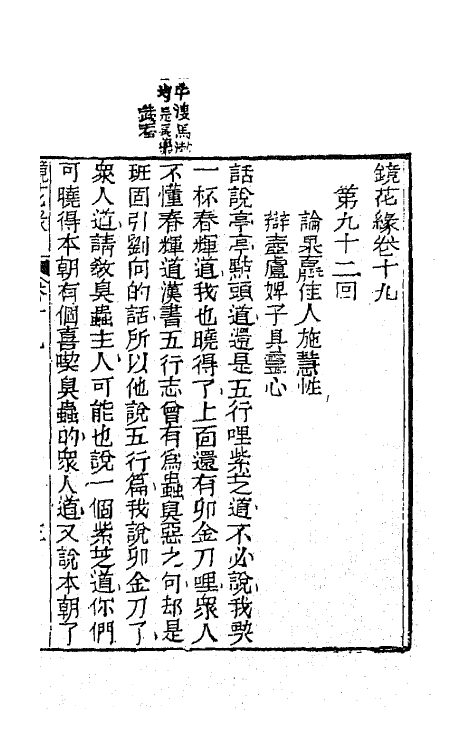 鏡花緣卷十九
第九十二回
論果蠃佳人施慧性
辯壺盧婢子具靈心
話說亭亭點頭道還是五行哩紫芝道不必說我喫
一杯春輝道我也曉得了上面還有卯金刀哩衆人
不懂春輝道漢書五行志曾有爲蟲臭惡之句却是
班固引劉向的話所以他說五行篇我說卯金刀了
衆人道請敎臭蟲主人可能也說一個紫芝道你們
可曉得本朝有個喜喫臭蟲的衆人道又說本朝了
鏡花緣
卷十九